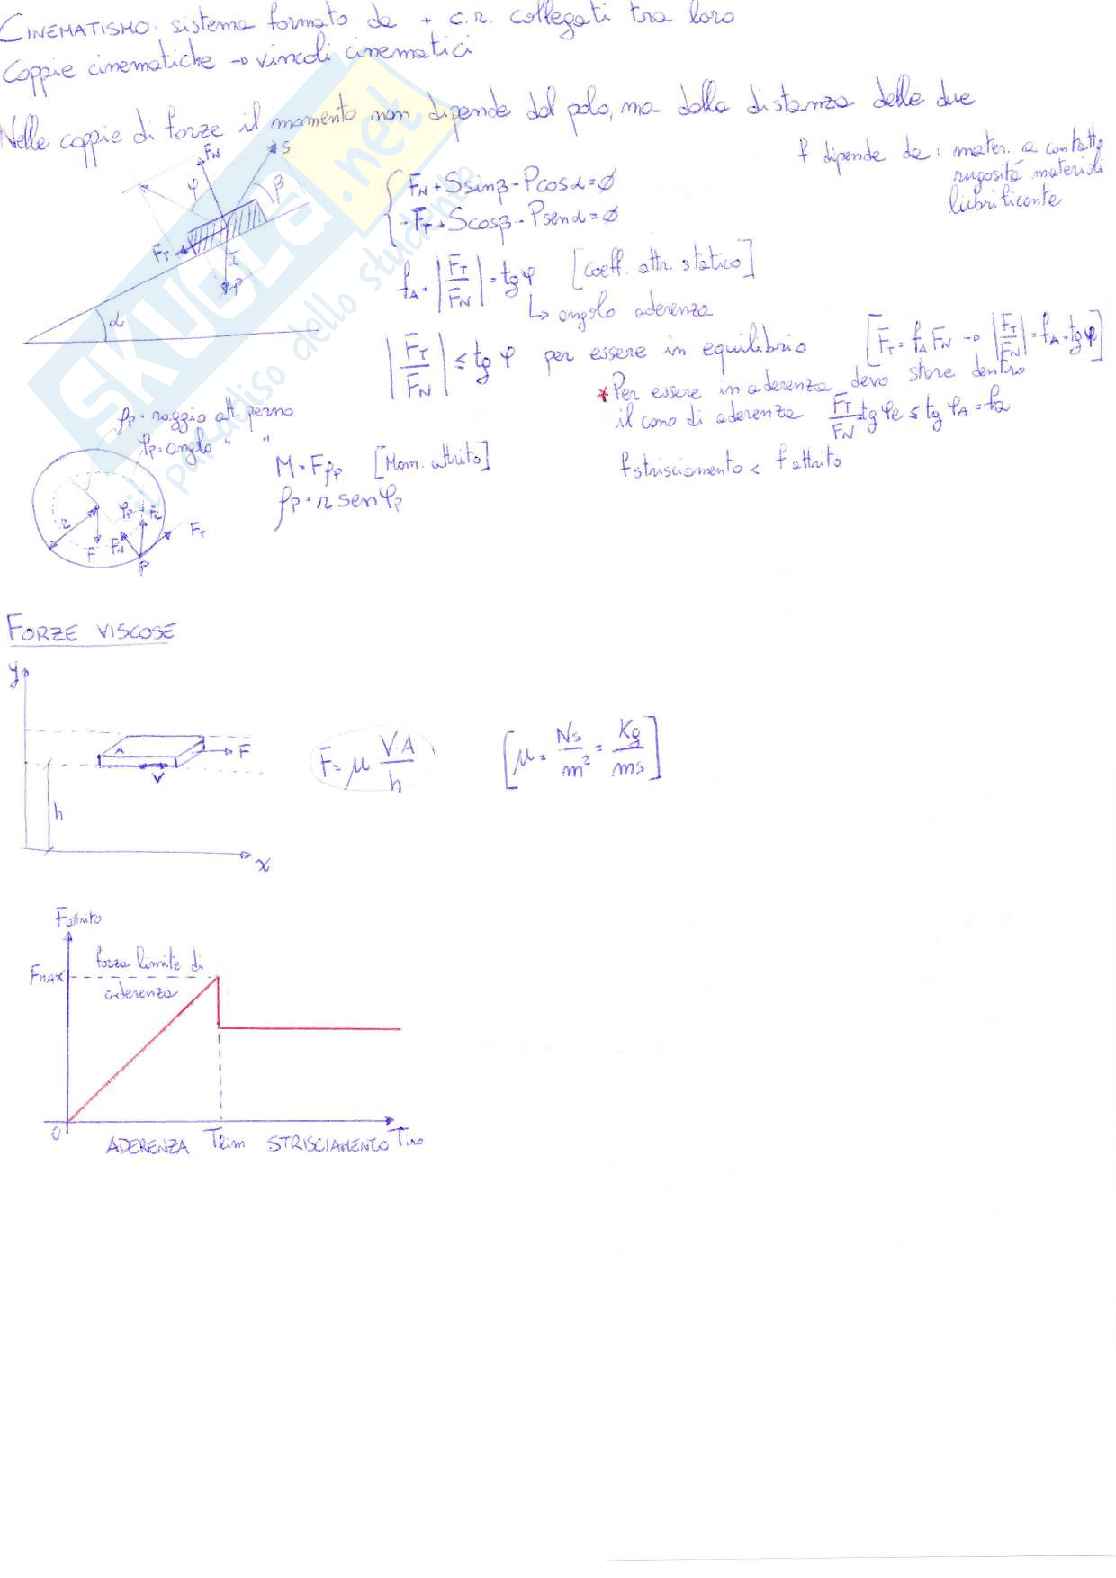 CINEMATISMO: sistema formato da + c.r. collegati tra loro
Coppie cinematiche → vincoli cinematici
Nelle coppie di forze il momento non dipende dal polo, ma dalla distanza delle due
f dipende da: mater. a contatto
rugosità materiali
lubrificante
FN
S
φ
β
FT
P
α
FN + Ssinβ - Pcosα = ∅
-FT + Scosβ - Psenα = ∅
fA = |FT/FN| = tgφ [coeff. attr. statico]
↳ angolo aderenza
|FT/FN| ≤ tg φ per essere in equilibrio
[FT = fA FN → |FT/FN| = fA = tgφ]
* Per essere in aderenza devo stare dentro
il cono di aderenza FT/FN = tg φe ≤ tg φA = fa
f strisciamento < f attrito
ρp = raggio att. perno
φp = angolo " "
M = Fρp [Mom. attrito]
ρp = r sen φp
r
F
FN
φp
FT
P
FORZE VISCOSE
y
A
F
V
h
x
F = μ VA/h
[μ = Ns/m² = Kg/ms]
Fattrito
FMAX
forza limite di
aderenza
0
ADERENZA Tlim STRISCIAMENTO Tiro
SKUOLA.net
il paradiso dello studente